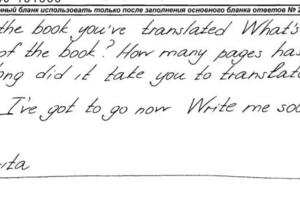 нный бланк использовать только после заполнения основного бланка ответов № 2
the book you've translated What's
of the book? How many pages has
ong did it take you to translat
I've got to go now Write me soo
ita